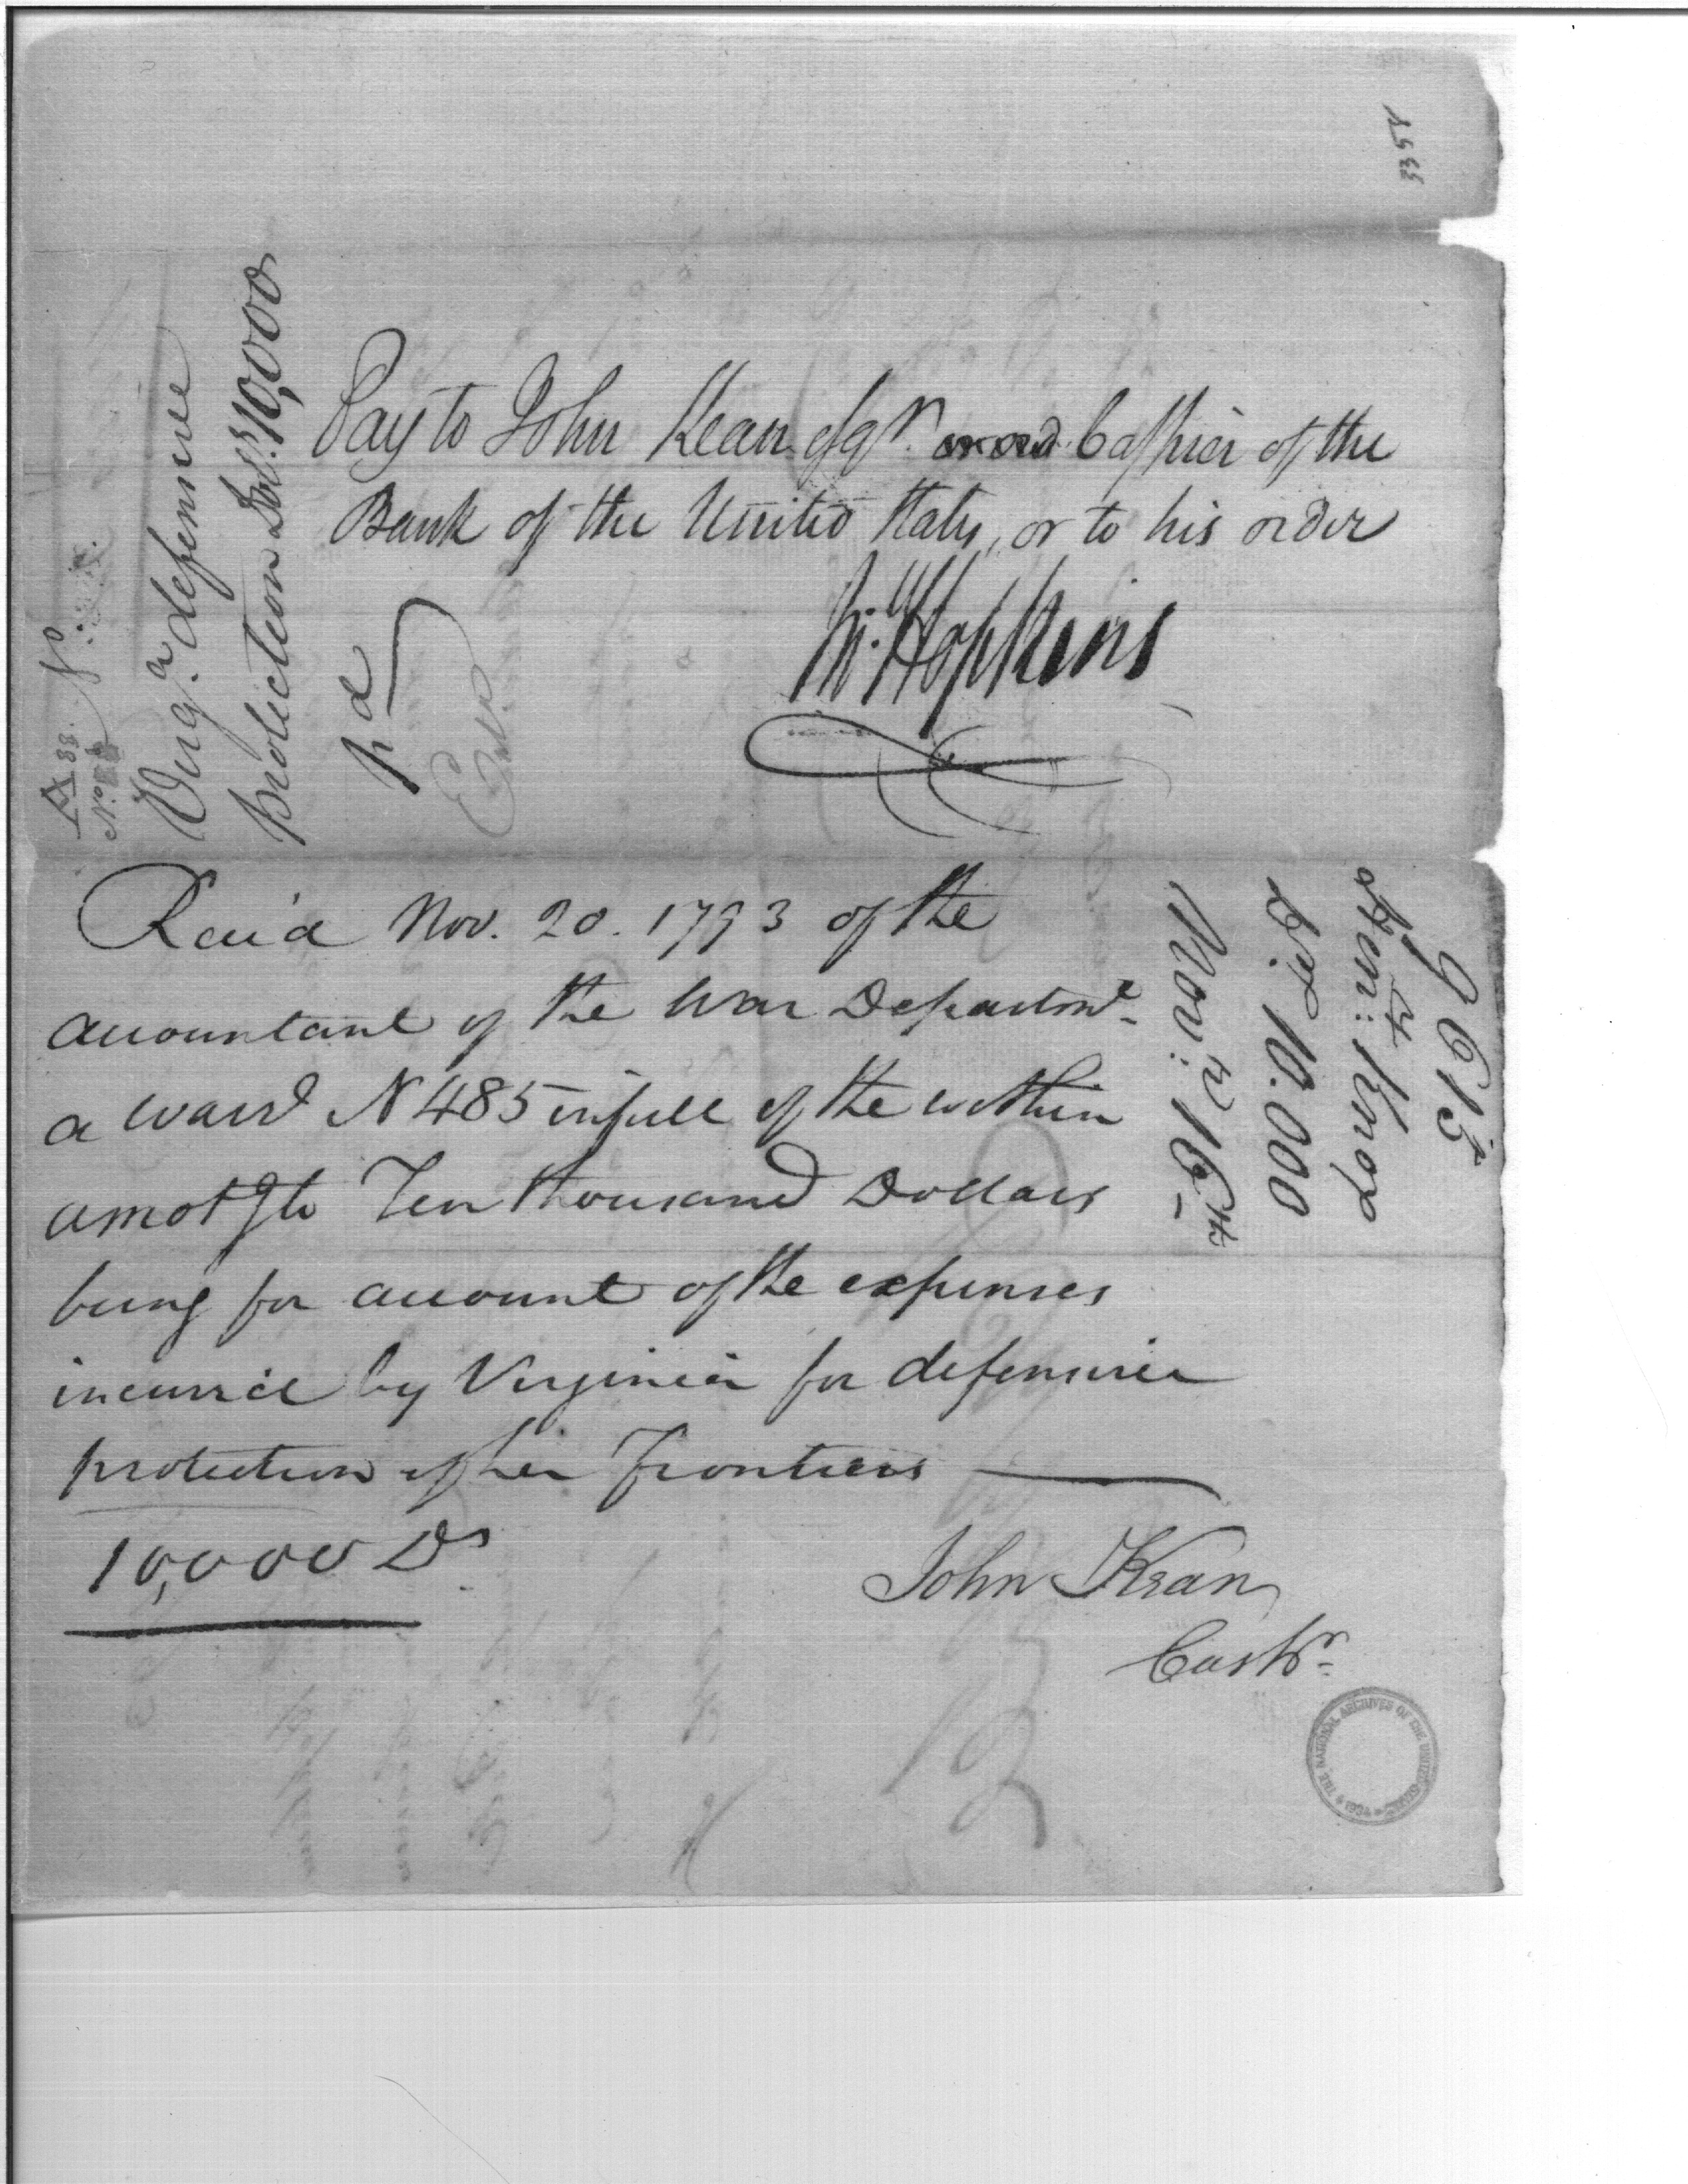 3358
Virg.a defensive
protection Dol.rs 10,000
pd
Pay to John Kean Esqr. Cashier of the
Bank of the United States, or to his order
Hopkins
Rec'd Nov. 20. 1793 of the
accountant of the War Departmt.
a warrt N 485 in full of the within
amotg to Ten thousand Dollars
being for account of the expenses
incurred by Virginia for defensive
protection of her Frontiers
10,000 Ds
John Kean
Cashr.
Nov: 16th
10.000
9615
THE NATIONAL ARCHIVES OF THE UNITED STATES 1934